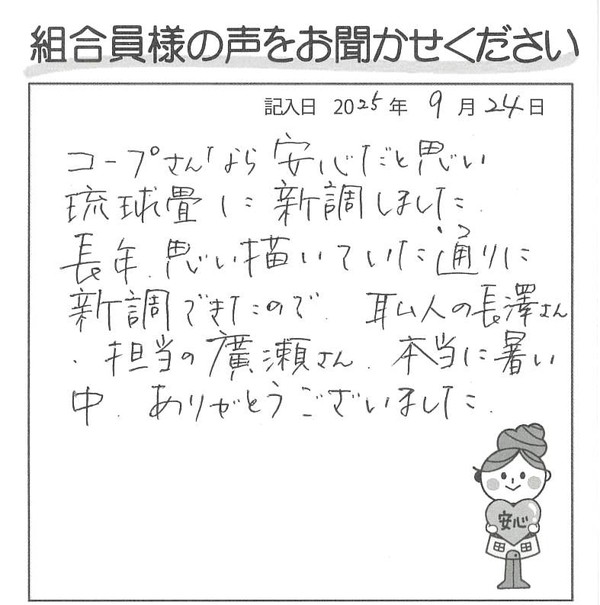 組合員様の声をお聞かせください
記入日 2025年 9月24日
コープさんなら安心だと思い
琉球畳に新調しました。
長年、思い描いていた通りに
新調できたので、職人の長澤さん
、担当の廣瀬さん、本当に暑い
中、ありがとうございました。
安心